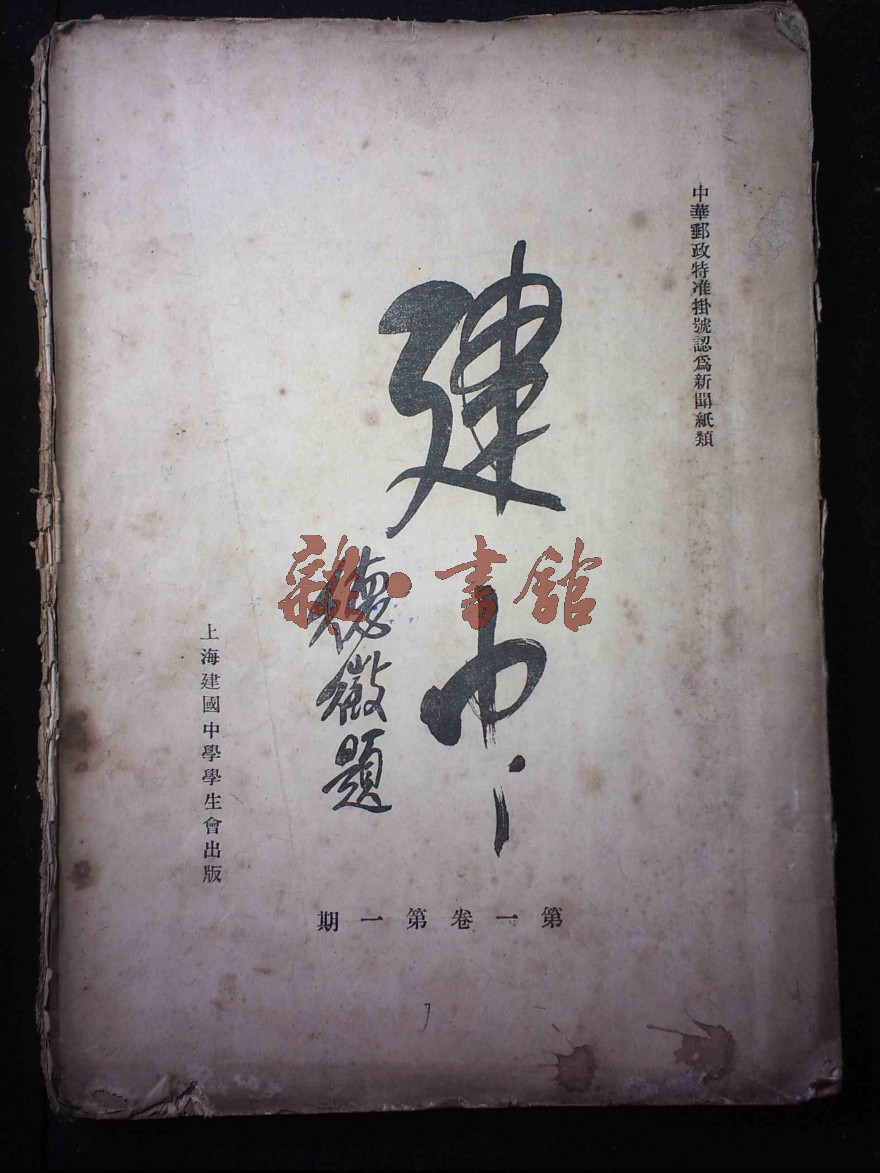 中華郵政特准掛號認爲新聞紙類
建中
德徵題
上海建國中學學生會出版
第一卷第一期
書館